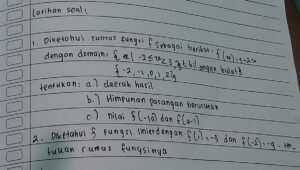 Latihan soal:
1. Diketahui rumus fungsi f sebagai berikut: f(x) = 9-2x
dengan domain: { x | -2 ≤ x < 3, x ϵ bilangan bulat }
{ -2, -1, 0, 1, 2 }
tentukan: a.) daerah hasil
b.) Himpunan pasangan berurutan
c.) nilai f(-10) dan f(a-1)
2. Diketahui f fungsi linier dengan f(1) = -3 dan f(-2) = -9. ten-
tukan rumus fungsinya